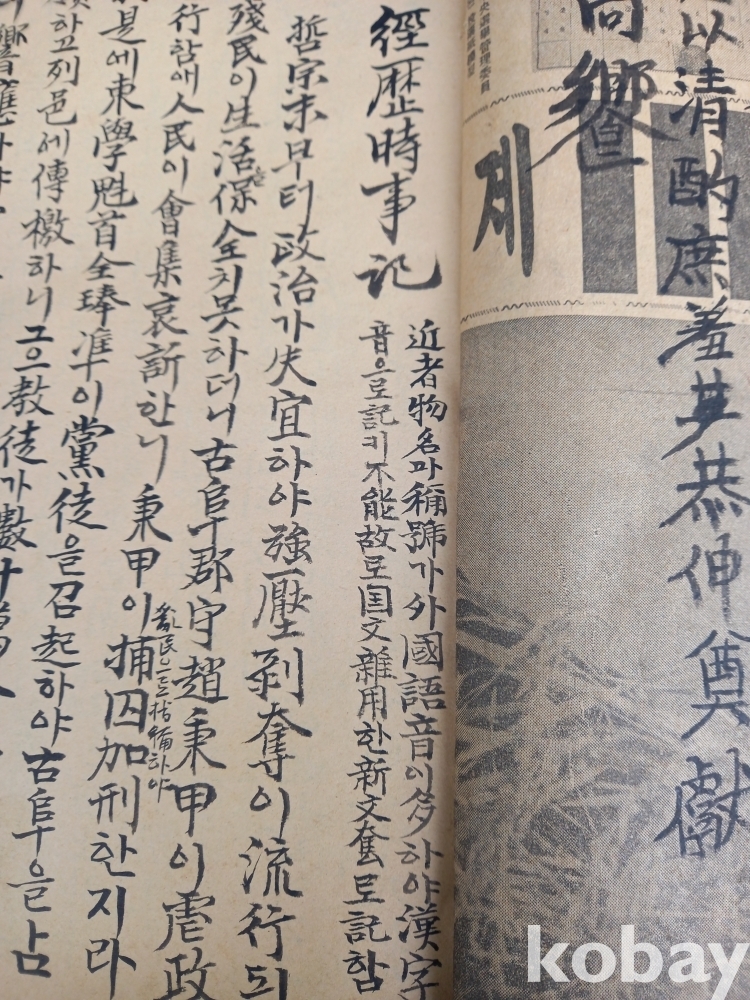 以清酌庶羞恭伸奠獻
尙饗
제
央選擧管理委員
經歷時事記
近者物名과稱號가外國語音이多하야漢字
音으로記키不能故로国文雜用한新文套로記함
哲宗末부터政治가失宜하야強壓剝奪이流行되
殘民이生活保全치못하더니古阜郡守趙秉甲이虐政
行함애人民이會集哀訴한니秉甲이捕囚加刑한지라
亂民으로指稱하야
是에東學魁首全琫準이黨徒을召起하야古阜을함
하고列邑에傳檄하니그으敎徒가數十萬人
響應하야